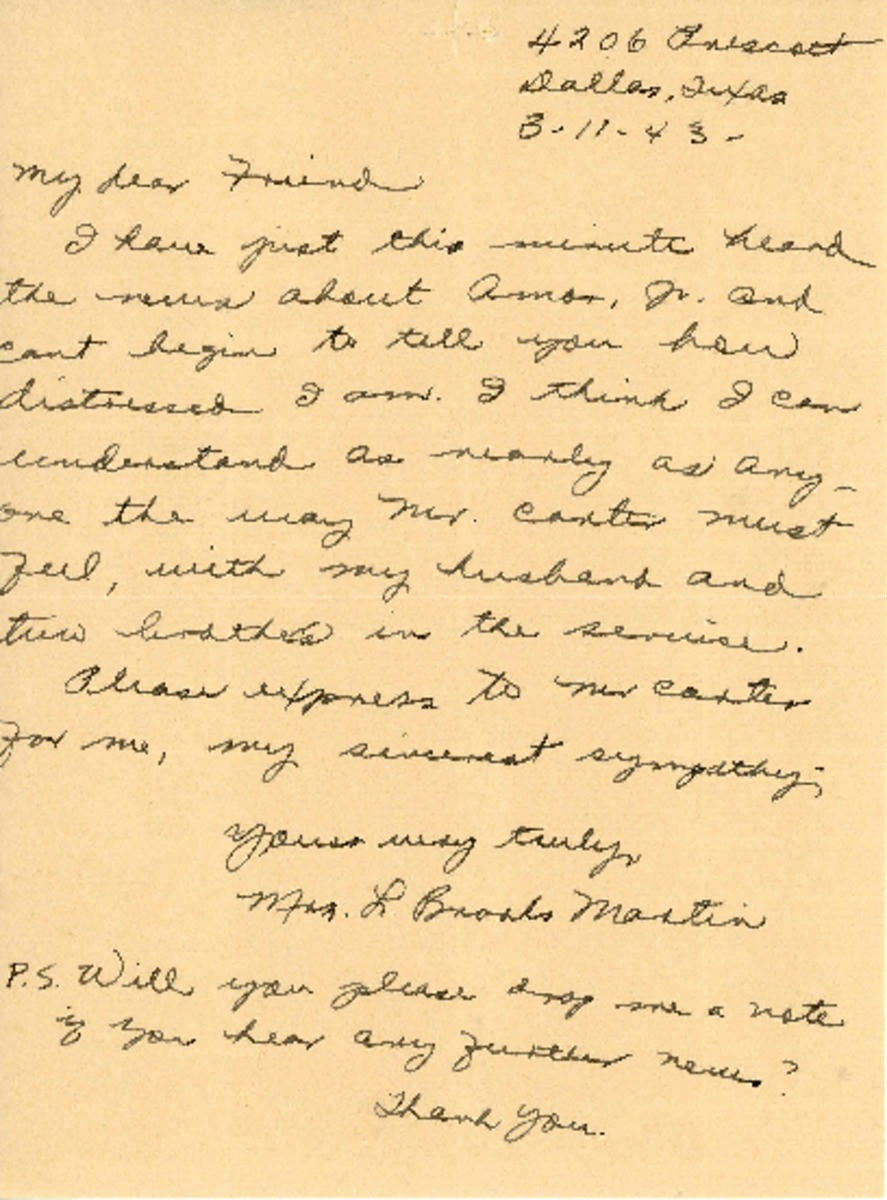 4206 Prescott
Dallas, Texas
3-11-43-
My dear Friend
I have just this minute heard
the news about Amon, Jr. and
cant begin to tell you how
distressed I am. I think I can
understand as nearly as any-
one the way Mr. Carter must
feel, with my husband and
two brothers in the service.
Please express to Mr Carter
for me, my sincerest sympathy;
Yours very truly,
Mrs. L Brooks Martin
P.S. Will you please drop me a note
if you hear any further news?
Thank you.